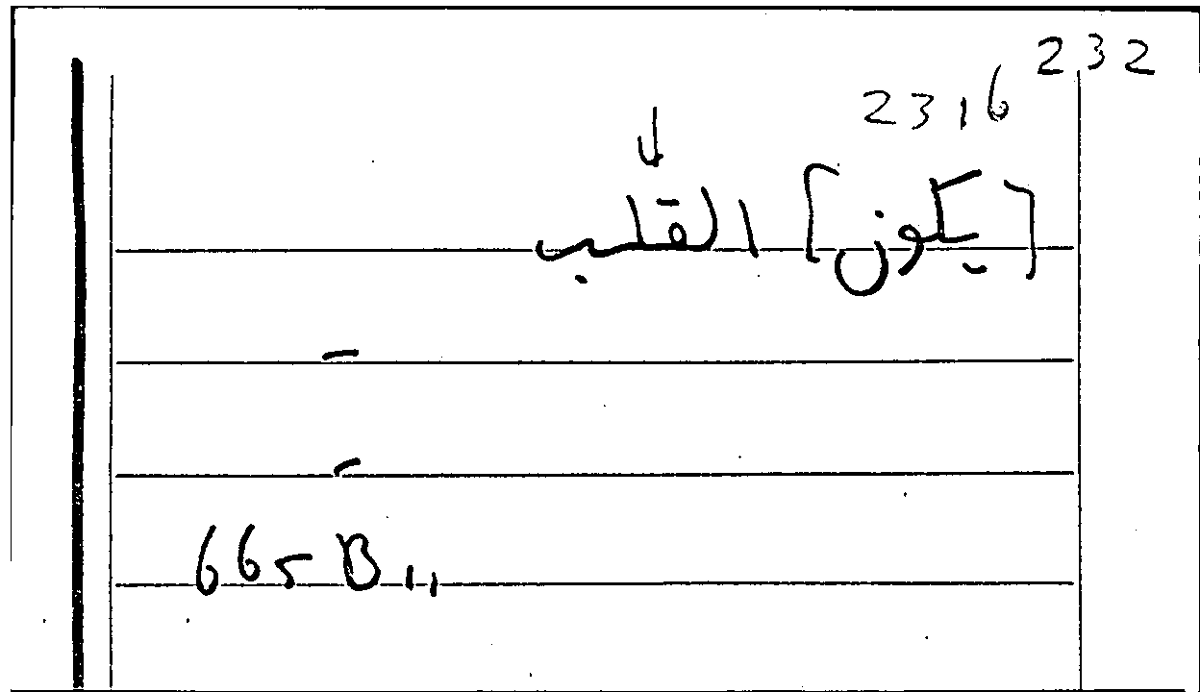 232
23,6
[يكون] القلب
665 B 11